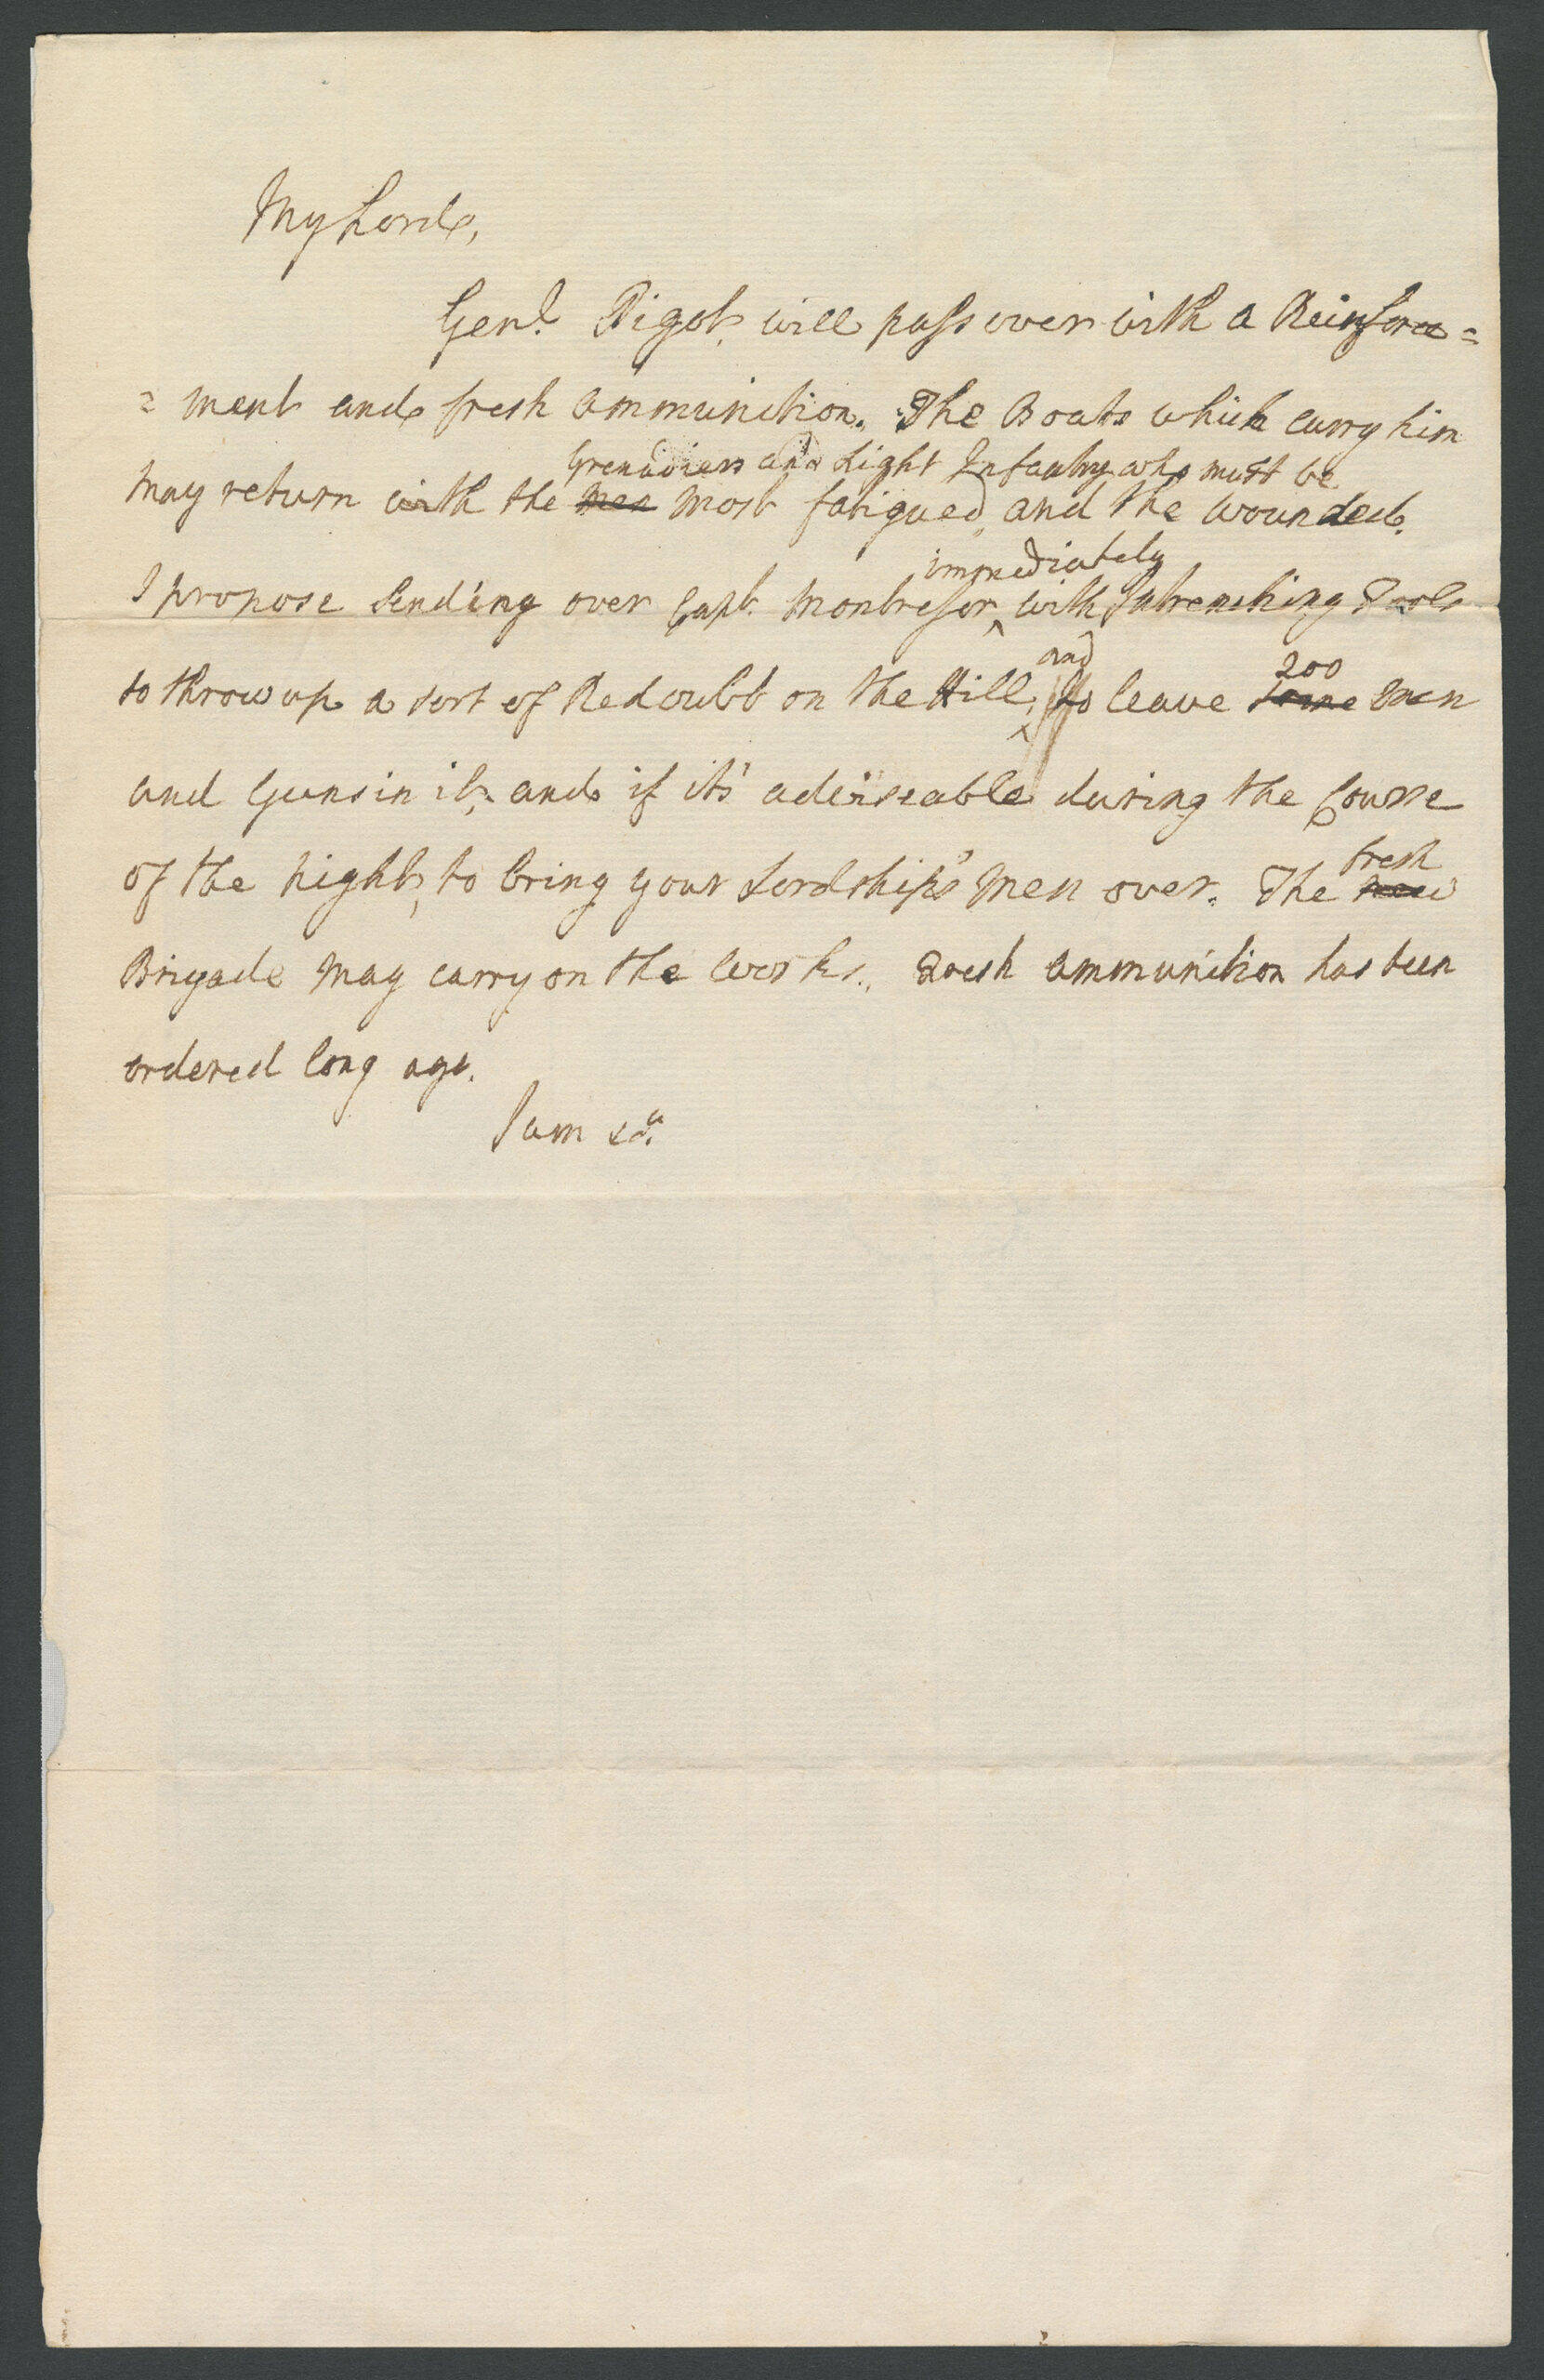 My Lord,
Genl. Pigot, will pass over with a Reinforce=
=ment and fresh Ammunition. The Boats which carry him
Grenadiers and Light Infantry who must be
may return with the men most fatigued, and the wounded.
immediately
I propose sending over Capt. Montresor, with Intrenching Tools
and 200
to throw up a sort of Redoubt on the Hill, to leave some Men
and Guns in it, and if it's adviseable during the Course
fresh
of the night, to bring your Lordship's Men over. The new
Brigade may carry on the Works. Fresh ammunition has been
ordered long ago.
I am &ca.